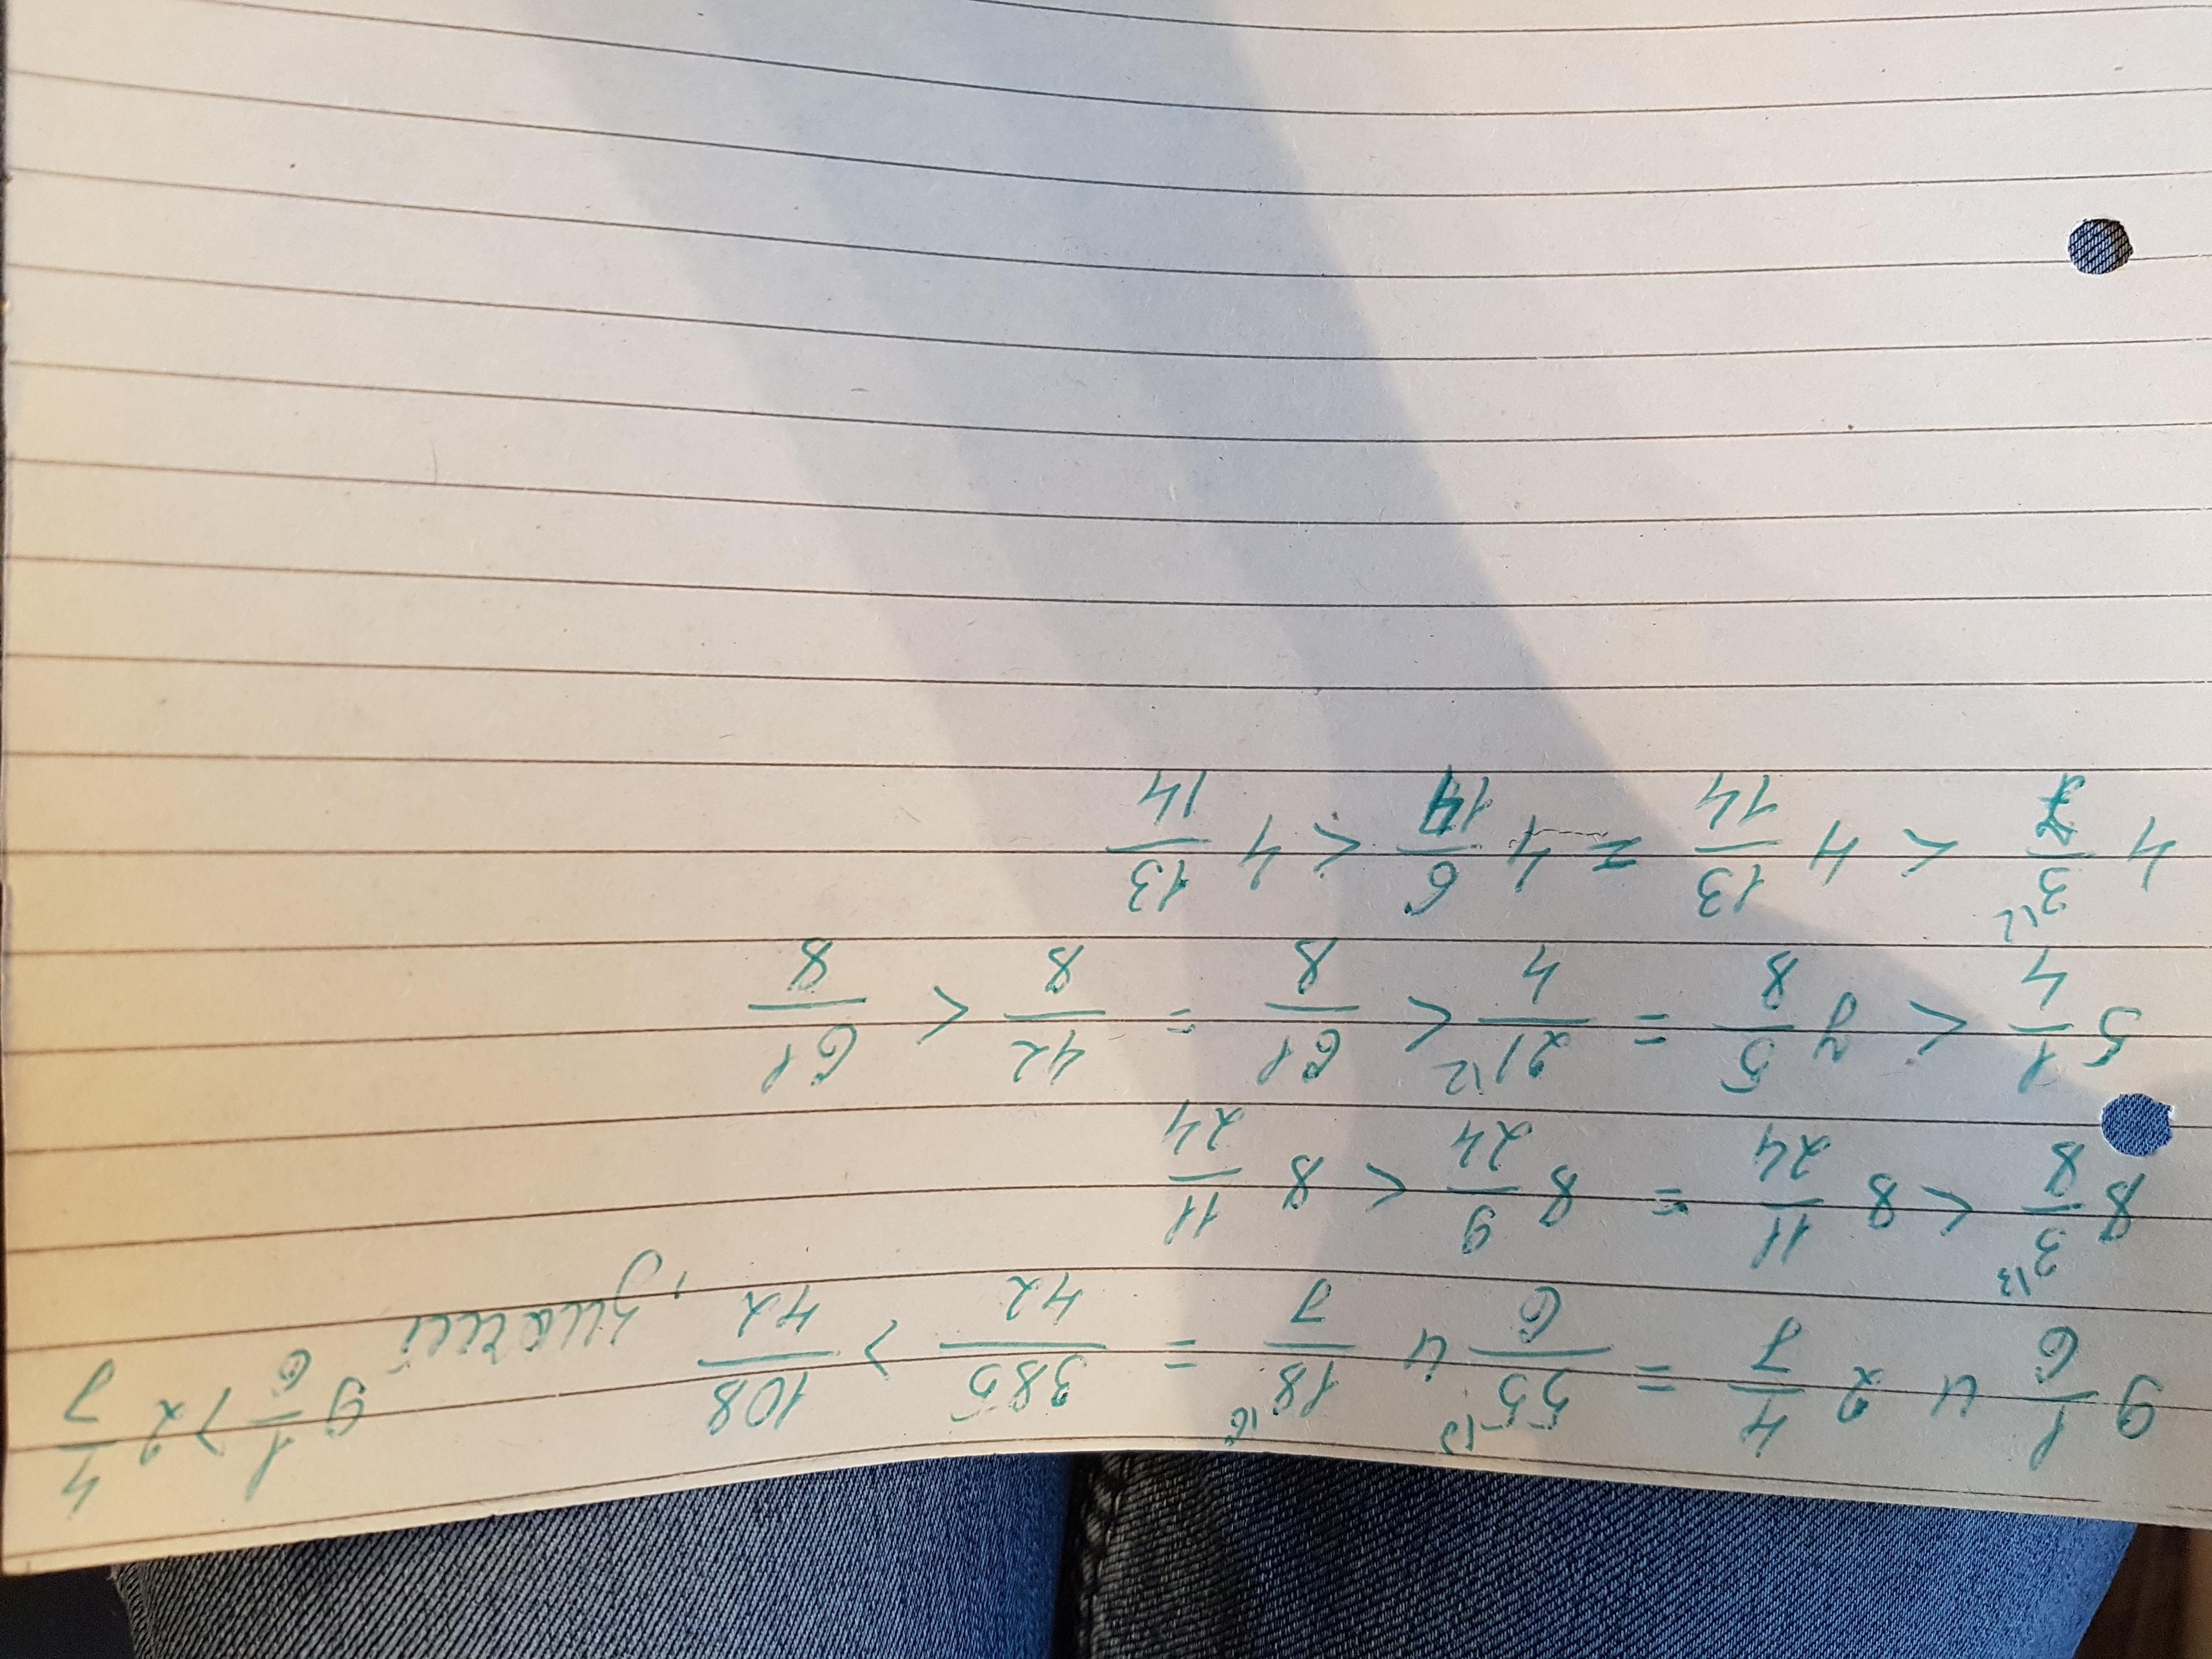 9 1/6 и 2 4/7 = 55^{\7}/6 и 18^{\6}/7 = 385/42 > 108/42, значит 9 1/6 > 2 4/7
8 3^{\3}/8 < 8 11/24 = 8 9/24 < 8 11/24
5 1/4 < 7 5/8 = 21^{\2}/4 < 61/8 = 42/8 < 61/8
4 3^{\2}/7 < 4 13/14 = 4 6/14 < 4 13/14